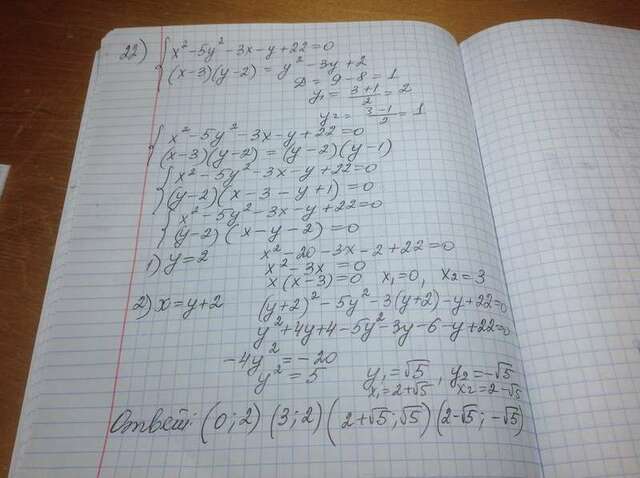 22) { x² - 5y² - 3x - y + 22 = 0
(x-3)(y-2) = y² - 3y + 2
D = 9 - 8 = 1
y₁ = (3+1)/2 = 2
y₂ = (3-1)/2 = 1
{ x² - 5y² - 3x - y + 22 = 0
(x-3)(y-2) = (y-2)(y-1)
{ x² - 5y² - 3x - y + 22 = 0
(y-2)(x-3-y+1) = 0
{ x² - 5y² - 3x - y + 22 = 0
(y-2)(x-y-2) = 0
1) y = 2 x² - 20 - 3x - 2 + 22 = 0
x² - 3x = 0
x(x-3) = 0 x₁ = 0, x₂ = 3
2) x = y+2 (y+2)² - 5y² - 3(y+2) - y + 22 = 0
y² + 4y + 4 - 5y² - 3y - 6 - y + 22 = 0
-4y² = -20
y² = 5 y₁ = √5, y₂ = -√5
x₁ = 2+√5 x₂ = 2-√5
Ответ: (0; 2) (3; 2) (2+√5; √5) (2-√5; -√5)